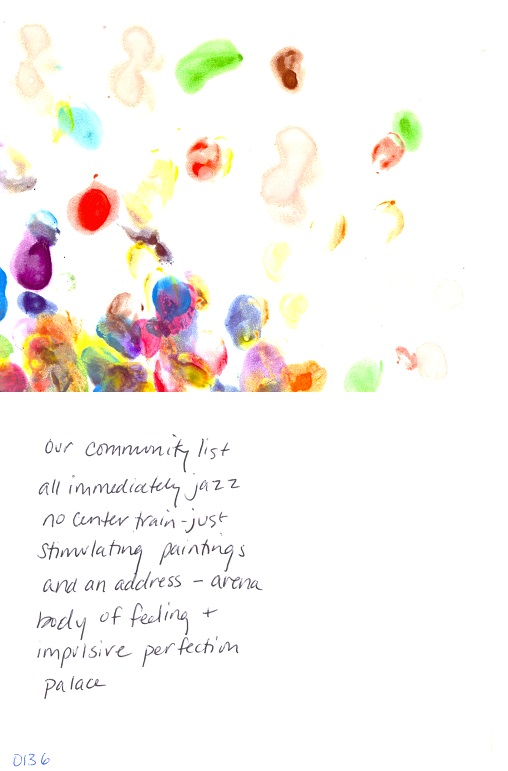 our community list
all immediately jazz
no center train-just
stimulating paintings
and an address – arena
body of feeling +
impulsive perfection
palace
D136